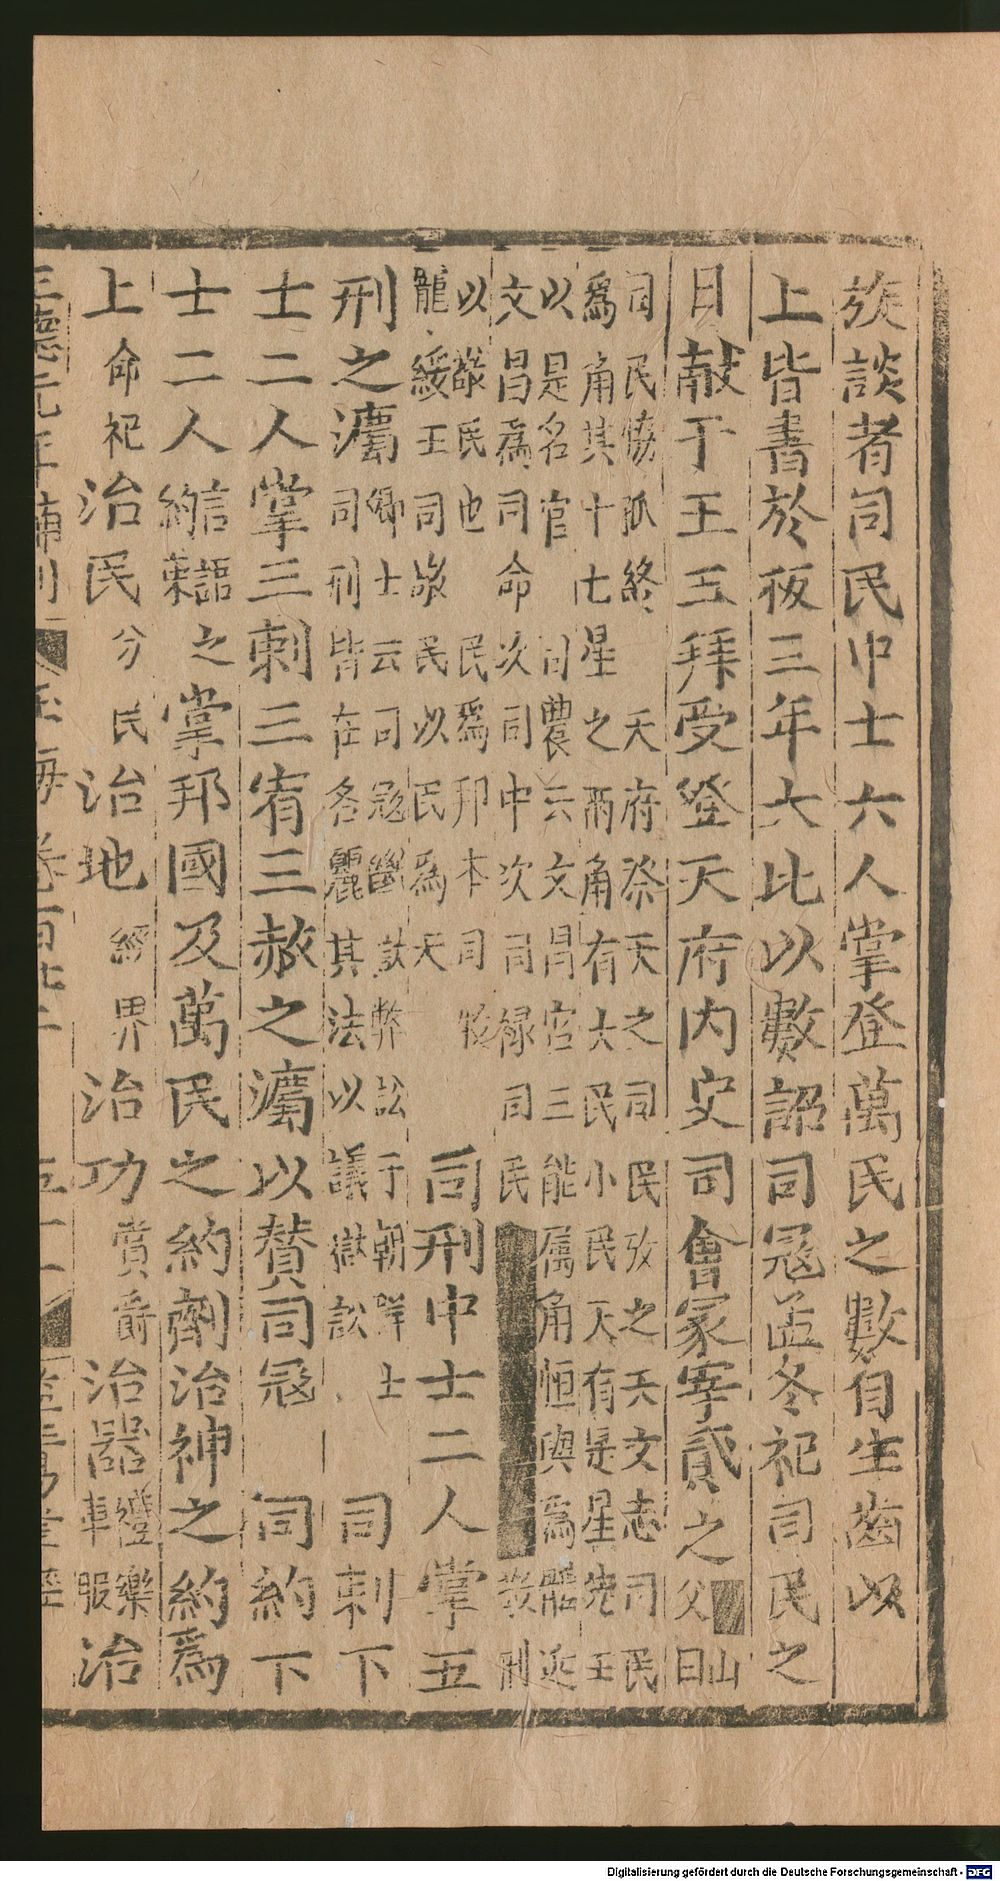 族談者司民中士六人掌登萬民之數自生齒以
上皆書於版三年大比以數詔司冦孟冬祀司民之
日献于王王拜受登天府内史司會冡宰貳之
山
父曰
司民協孤終 天府祭天之司民攷之天文志司民
爲角其十七星之兩角有大民小民天有是星
以是名官 日農 六文 三能属角恒與爲
文昌爲司命次司中次司禄司民
以 民也 民爲邦本司牧
龍綏王司 民以民爲天
司刑中士二人掌五
刑之灋
卿士云司冦斷 弊訟于朝 士
司刑皆在各麗其法以議獄訟
司刺下
士二人掌三刺三宥三赦之灋以贊司冦 司約下
士二人
言語之
約束
掌邦國及萬民之約劑治神之約爲
上命祀治民分民治地經界治功賞爵治器
禮樂
車服
治
正德元年補刊 玉海卷百
Digitalisierung gefördert durch die Deutsche Forschungsgemeinschaft - DFG